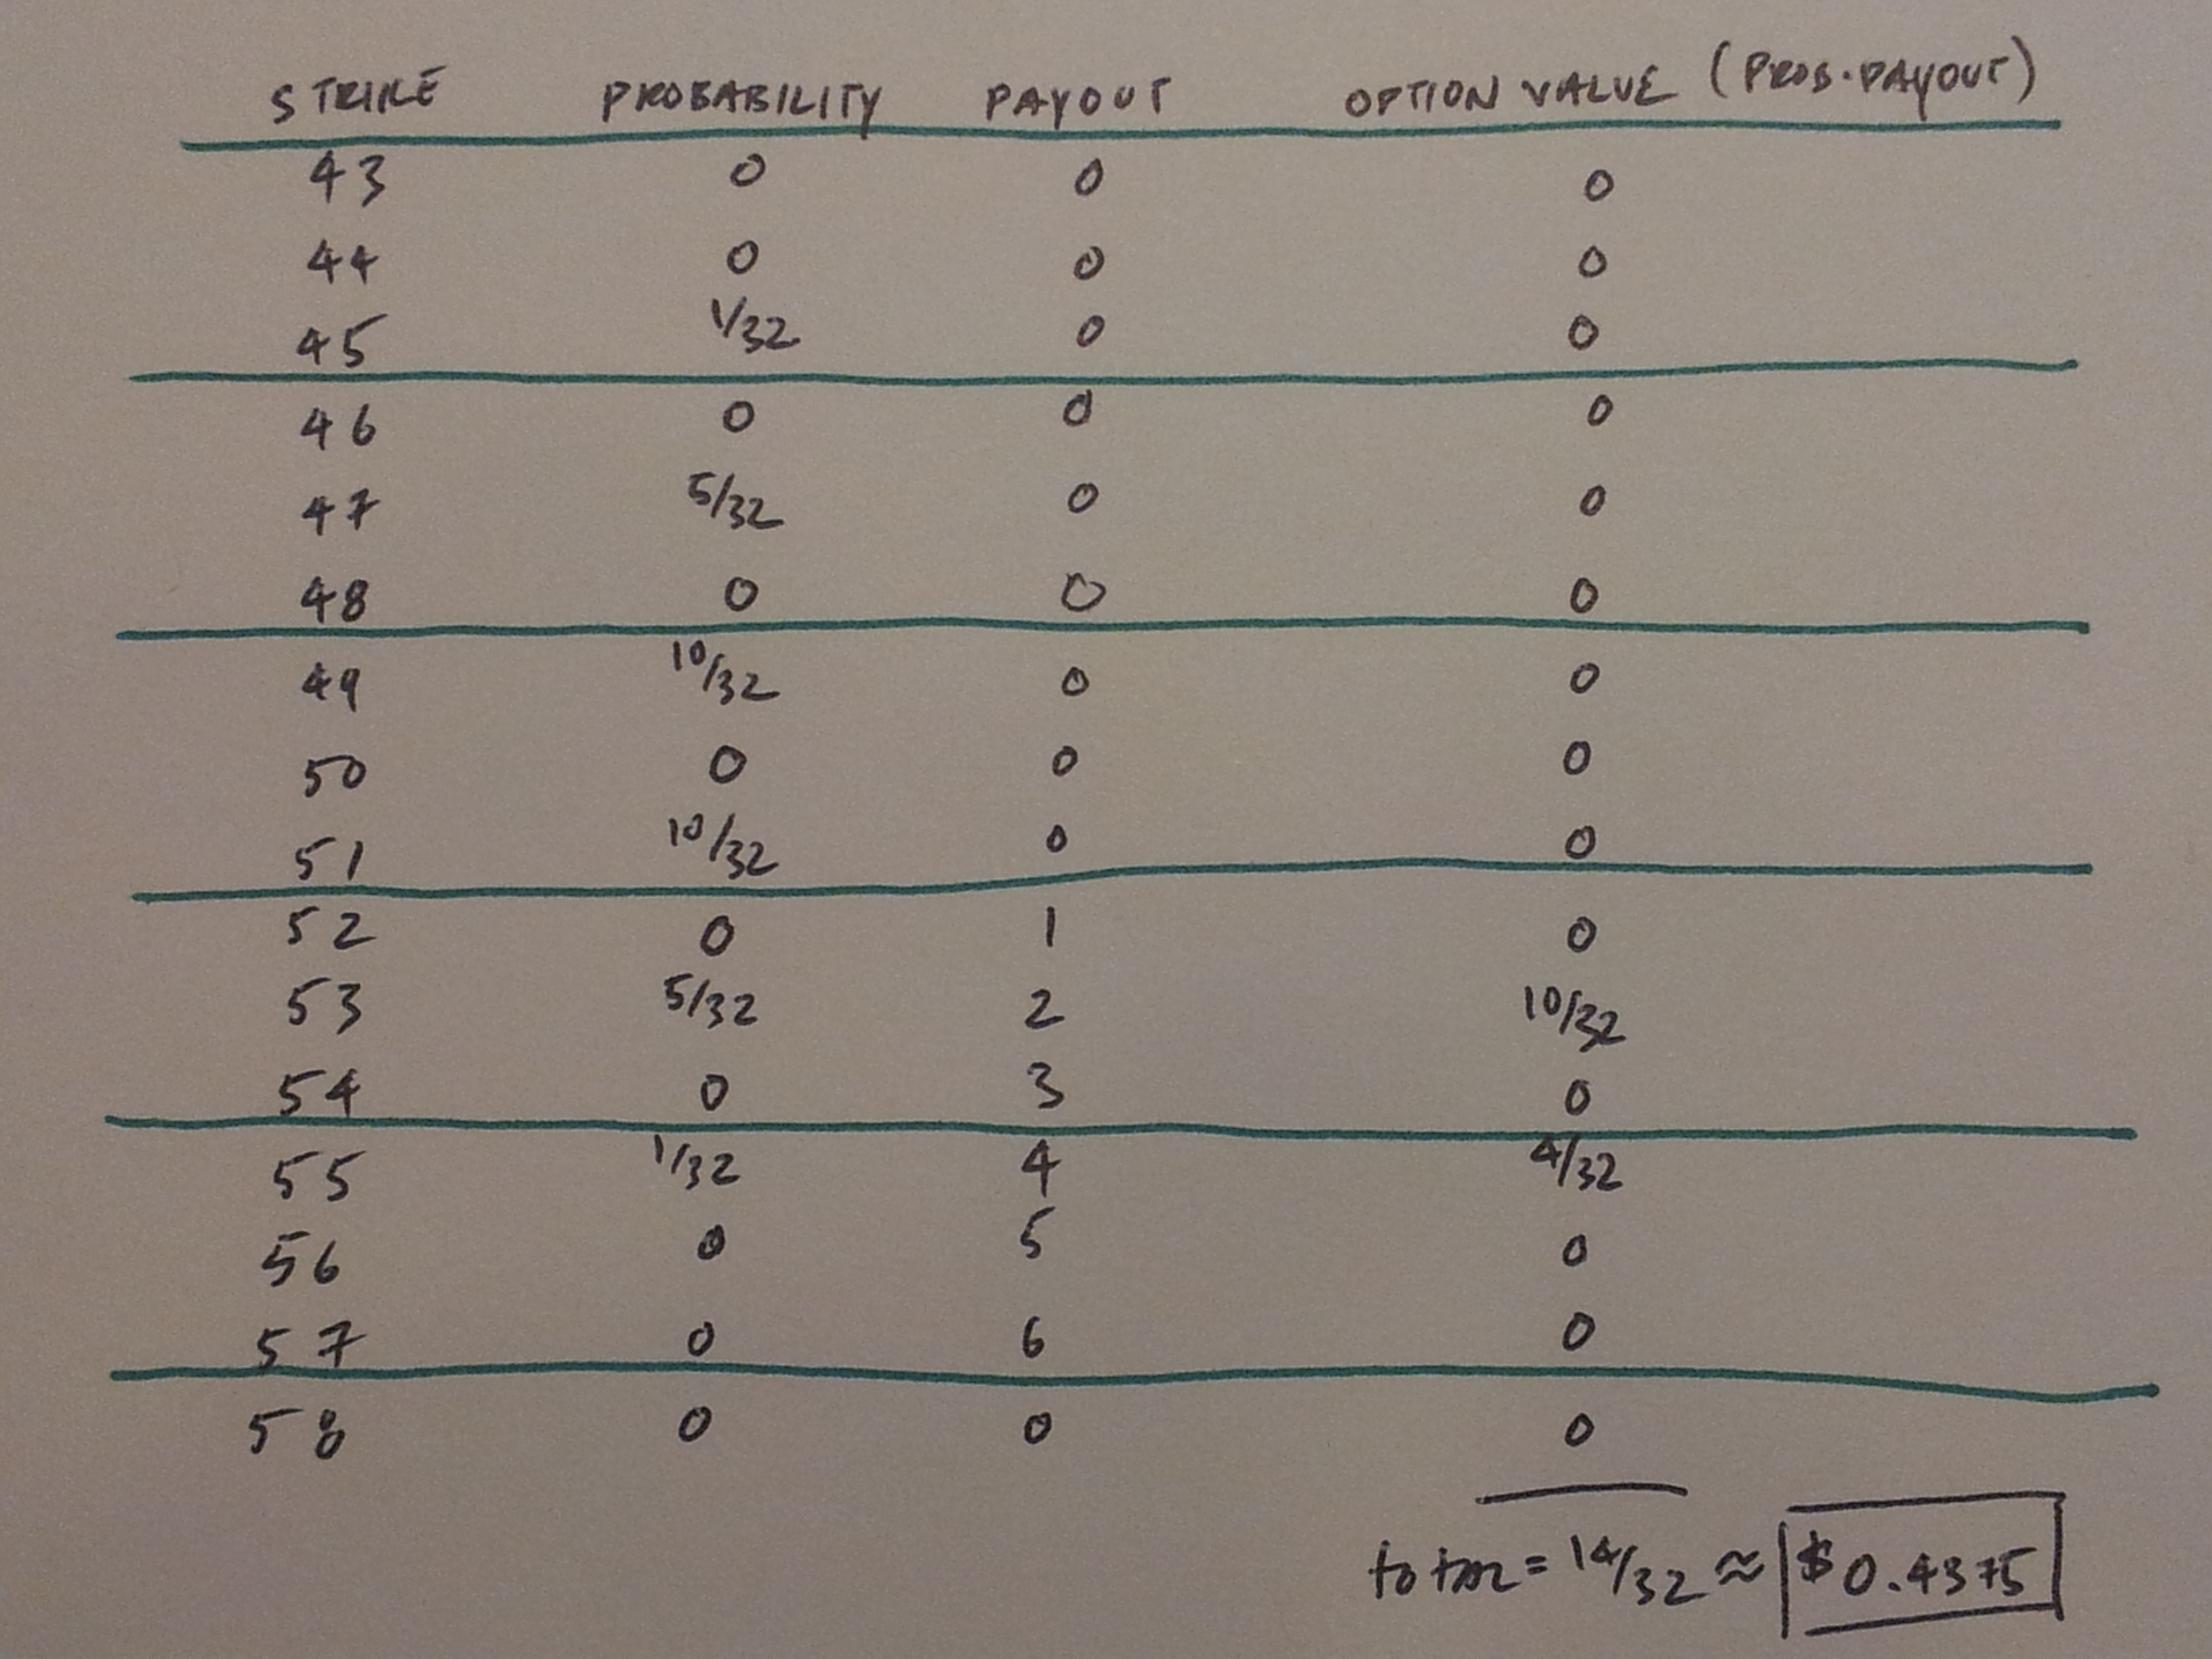 STRIKE PROBABILITY PAYOUT OPTION VALUE (PROB·PAYOUT)
43 0 0 0
44 0 0 0
45 1/32 0 0
46 0 0 0
47 5/32 0 0
48 0 0 0
49 10/32 0 0
50 0 0 0
51 10/32 0 0
52 0 1 0
53 5/32 2 10/32
54 0 3 0
55 1/32 4 4/32
56 0 5 0
57 0 6 0
58 0 0 0
total = 14/32 ≈ $0.4375